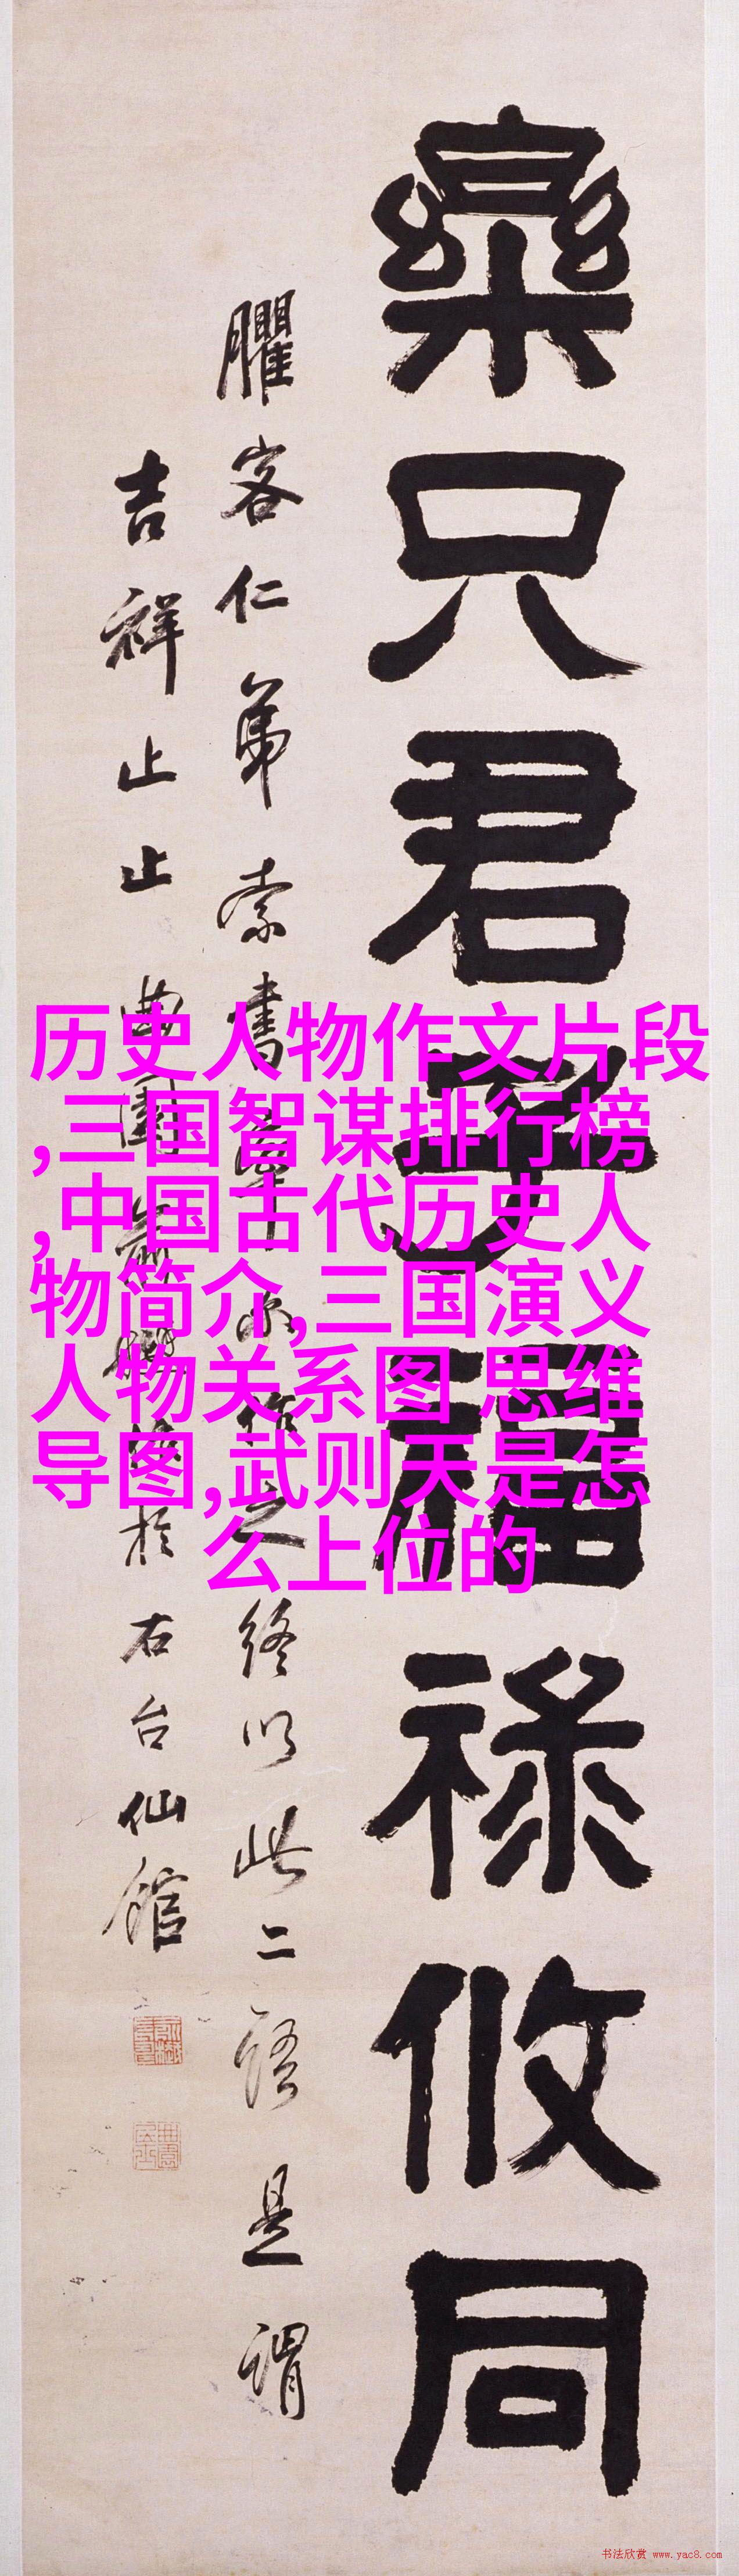 樂只君子福祿攸同
臞客仁弟索書
終以此二語是謂
吉祥止止曲園
於右台仙館
历史人物作文片段
,三国智谋排行榜
,中国古代历史人
物简介,三国演义
人物关系图 思维
导图,武则天是怎
么上位的
书法欣赏 www.yac8.com